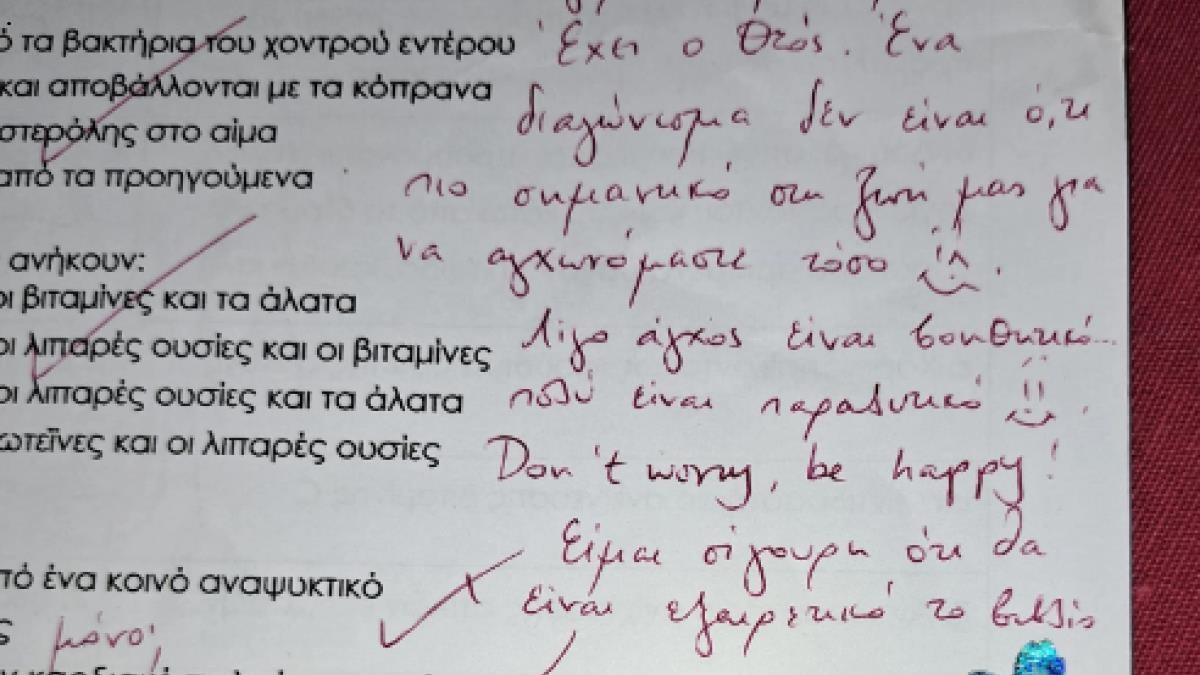 ό τα βακτήρια του χοντρού εντέρου
και αποβάλλονται με τα κόπρανα
στερόλης στο αίμα
από τα προηγούμενα
ανήκουν:
οι βιταμίνες και τα άλατα
οι λιπαρές ουσίες και οι βιταμίνες
οι λιπαρές ουσίες και τα άλατα
ωτεΐνες και οι λιπαρές ουσίες
πό ένα κοινό αναψυκτικό
ς μόνο;
Έχει ο Θεός. Ένα
διαγώνισμα δεν είναι ό,τι
πιο σημαντικό στη ζωή μας για
να αγχωνόμαστε τόσο
Λίγο άγχος είναι βοηθητικό...
πολύ είναι παραλυτικό
Don't worry, be happy!
Είμαι σίγουρη ότι θα
είναι εξαιρετικό το